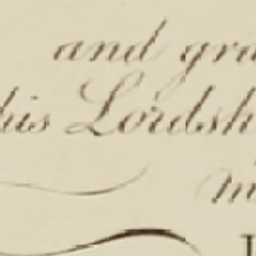 and gra
his Lordsh
m